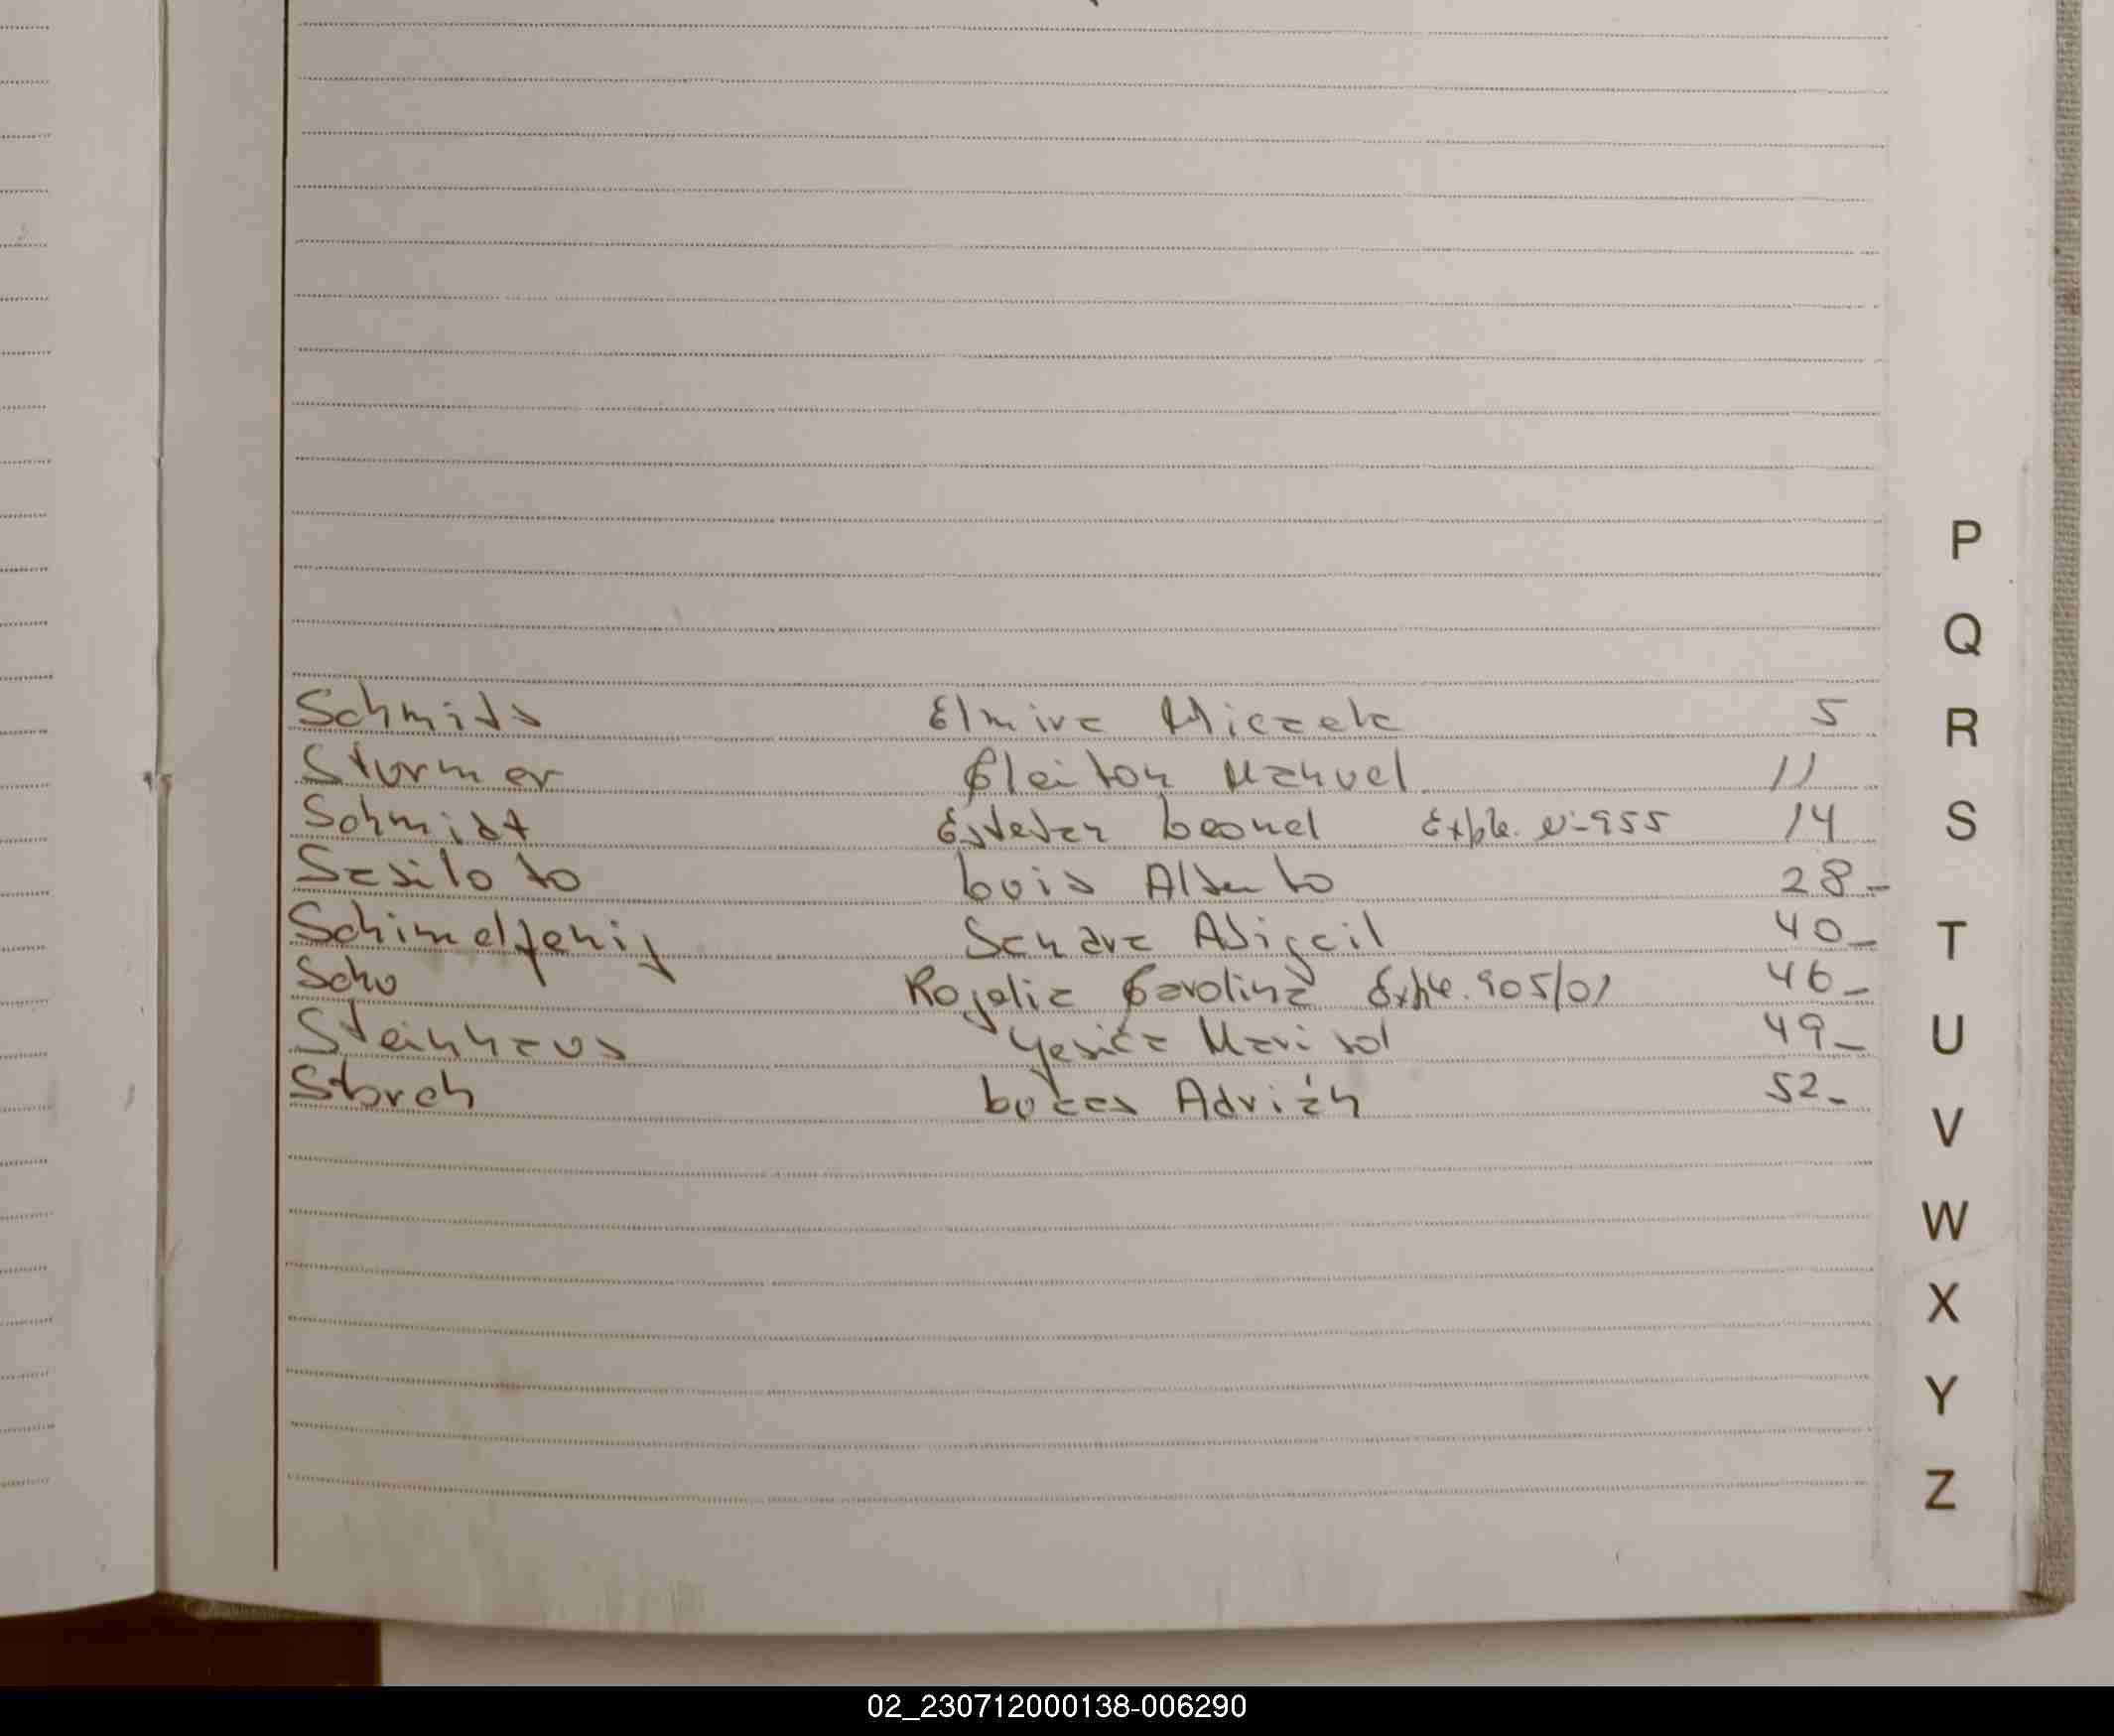 Schmids Elmira Miczek 5
Sturmer Cleiton Manuel 11
Schmidt Esteban Leonel Expte. Nº 955 14
Luis Alberto 28-
Schimelfenig Abigail 40-
Scho Rogelia Carolina Expte. 905/01 46-
Steinhaus Yesica Marisol 49-
Storch Lucas Adrián 52-
P
Q
R
S
T
U
V
W
X
Y
Z
02_230712000138-006290